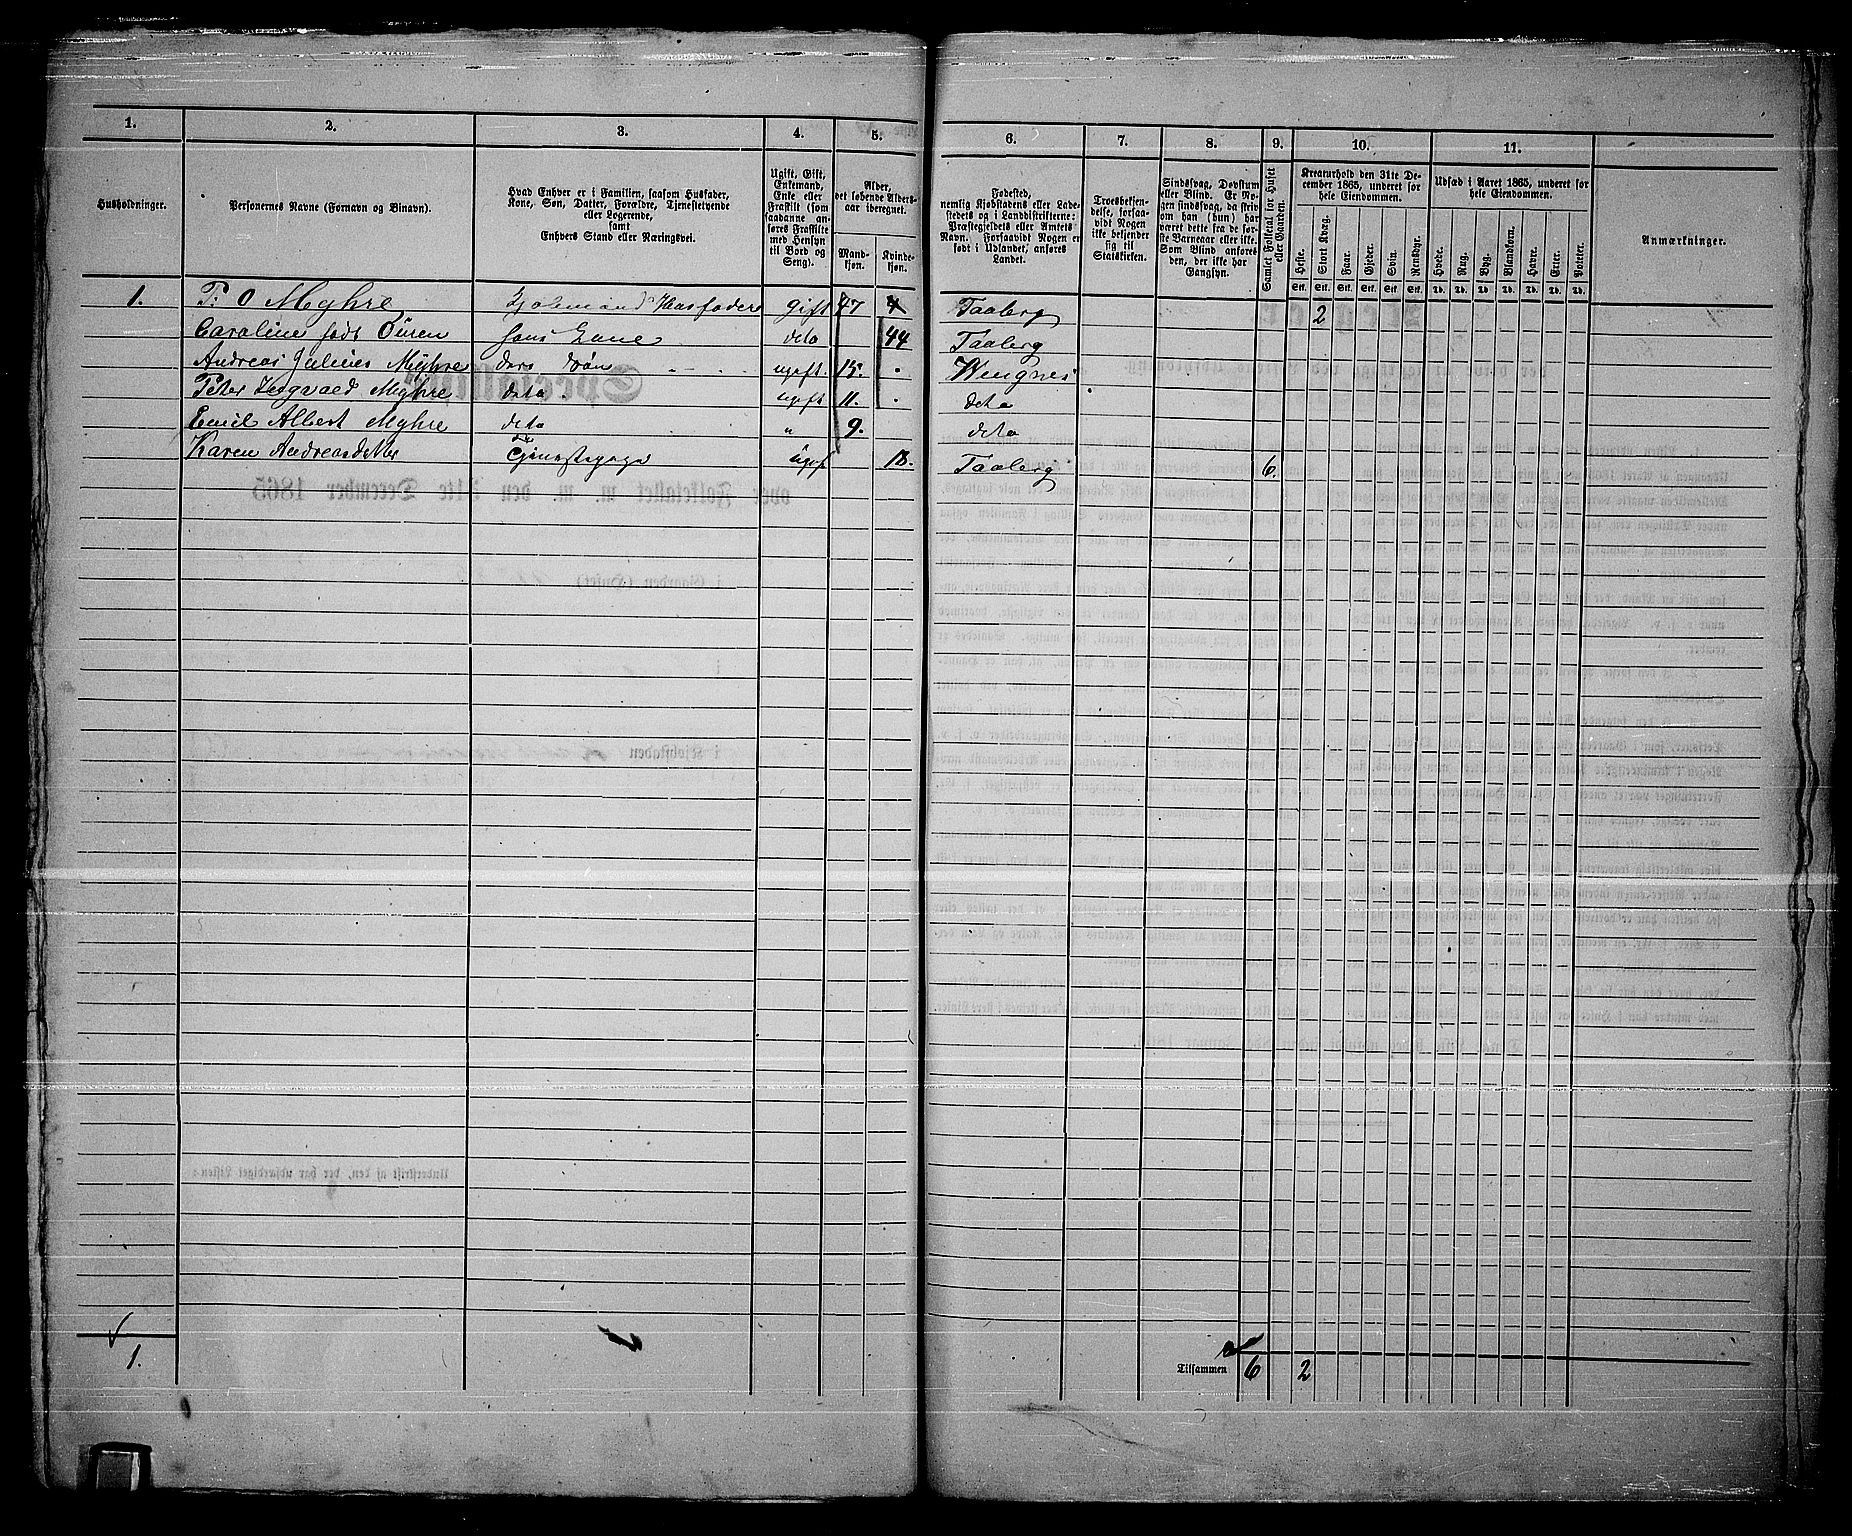 1.
2.
3.
4.
5.
6.
7.
8.
9.
10.
11.
Husholdninger.
Personernes Navne (Fornavn og Binavn).
Hvad Enhver er i Familien, saasom Husfader,
Kone, Søn, Datter, Forældre, Tjenestetyende
eller Logerende,
samt
Enhvers Stand eller Næringsvei.
Ugift, Gift,
Enkemand,
Enke eller
Fraskilt (som
saadanne an-
føres Fraskilte
med Hensyn
til Bord og
Seng).
Alder,
det løbende Alders-
aar iberegnet.
Mand-
kjøn.
Kvinde-
kjøn.
Fødested,
nemlig Kjøbstadens eller Lade-
stedets og i Landdistrikterne:
Præstegjeldets eller Amtets
Navn. Forsaavidt Nogen er
født i Udlandet, anføres
Landet.
Troesbekjen-
delse, forsaa-
vidt Nogen
ikke bekjender
sig til
Statskirken.
Sindssvag, Døvstum
eller Blind. Er No-
gen sindssvag, da skriv
om han (hun) har
været dette fra de før-
ste Barneaar eller ikke.
Som Blind anføres
den, der ikke har
Gangsyn.
Samlet Folketal for Huset
eller Gaarden.
Kreaturhold den 31te De-
cember 1865, underet for
hele Eiendommen.
Heste.
Stort Kvæg.
Faar.
Gjeder.
Svin.
Rensdyr.
Stk. Stk. Stk. Stk. Stk. Stk.
Udsæd i Aaret 1865, underet for
hele Eiendommen.
Hvede.
Rug.
Byg.
Blandkorn.
Havre.
Erter.
Poteter.
Td. Td. Td. Td. Td. Td. Td.
Anmærkninger.
1. P: O Myhre Husfader gift 47 Faaberg 2
Caroline født Ouren hans Kone deto 44 Faaberg
Andreas Julius Myhre deres Søn ugift. 15. Wingnes
Peter Myhre deto ugift 11. deto
Emil Albert Myhre deto " 9. deto
Karen Andreasdatter Tjenestepige ugift 18. Faaberg 6.
1.
Tilsammen 6 2